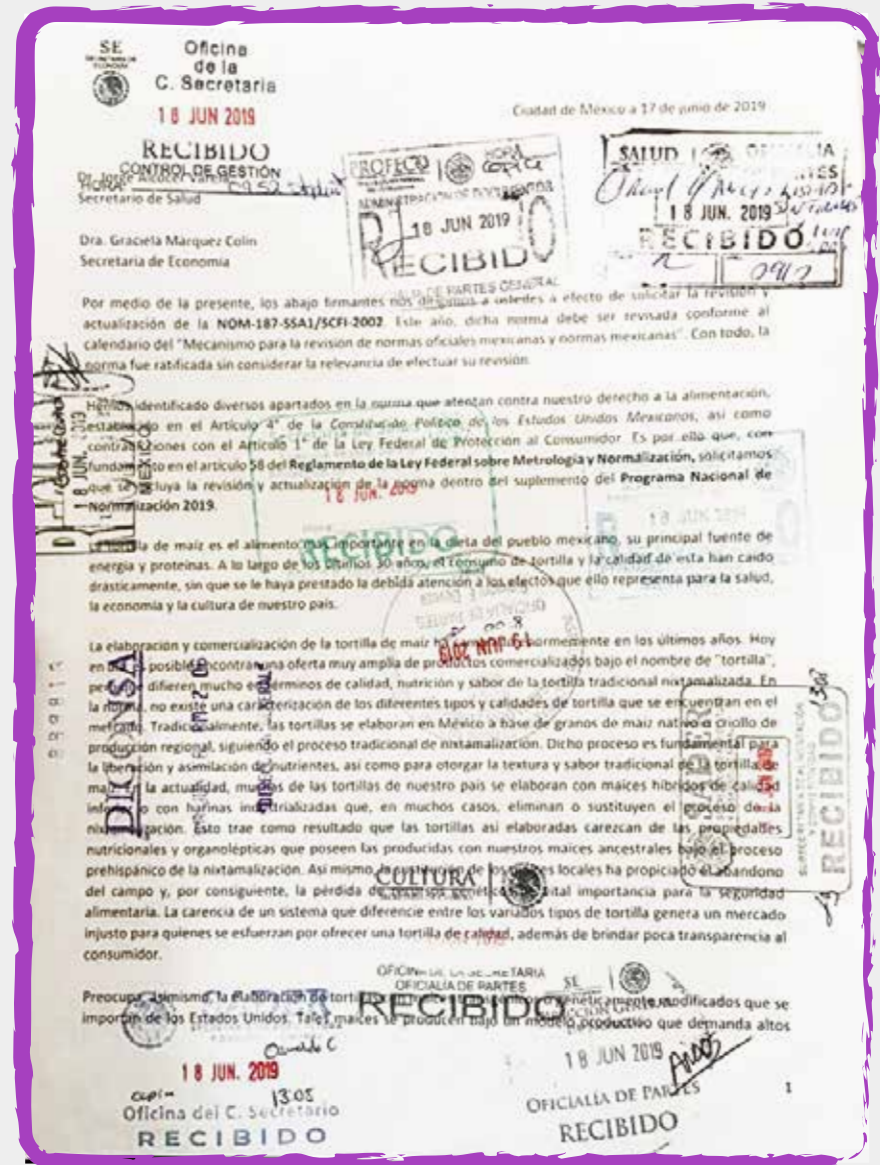 SE
Oficina
de la
C. Secretaria
18 JUN 2019
RECIBIDO
CONTROL DE GESTIÓN
HORA
Ciudad de México a 17 de junio de 2019
PROFECO
COPIA
ADMINISTRACION DE DOCUMENTOS
18 JUN 2019
RECIBIDO
OFICIALIA DE PARTES GENERAL
SALUD
18 JUN. 2019
RECIBIDO
Dr. Jorge Alcocer Varela
Secretario de Salud
Dra. Graciela Márquez Colín
Secretaria de Economía
Por medio de la presente, los abajo firmantes nos dirigimos a ustedes a efecto de solicitar la revisión y
actualización de la NOM-187-SSA1/SCFI-2002. Este año, dicha norma debe ser revisada conforme al
calendario del "Mecanismo para la revisión de normas oficiales mexicanas y normas mexicanas". Con todo, la
norma fue ratificada sin considerar la relevancia de efectuar su revisión.
Hemos identificado diversos apartados en la norma que atentan contra nuestro derecho a la alimentación,
establecido en el Artículo 4° de la Constitución Política de los Estados Unidos Mexicanos, así como
contradicciones con el Artículo 1° de la Ley Federal de Protección al Consumidor. Es por ello que, con
fundamento en el artículo 58 del Reglamento de la Ley Federal sobre Metrología y Normalización, solicitamos
que se incluya la revisión y actualización de la norma dentro del suplemento del Programa Nacional de
Normalización 2019.
18 JUN. 2019
MEXICO
18 JUN. 2019
RECIBIDO
18 JUN 2019
La tortilla de maíz es el alimento más importante en la dieta del pueblo mexicano, su principal fuente de
energía y proteínas. A lo largo de los últimos 30 años, el consumo de tortilla y la calidad de esta han caído
drásticamente, sin que se le haya prestado la debida atención a los efectos que ello representa para la salud,
la economía y la cultura de nuestro país.
OFICIALIA DE PARTES
19 JUN 2019
La elaboración y comercialización de la tortilla de maíz ha cambiado enormemente en los últimos años. Hoy
en día es posible encontrar una oferta muy amplia de productos comercializados bajo el nombre de "tortilla",
pero que difieren mucho en términos de calidad, nutrición y sabor de la tortilla tradicional nixtamalizada. En
la norma, no existe una caracterización de los diferentes tipos y calidades de tortilla que se encuentran en el
mercado. Tradicionalmente, las tortillas se elaboran en México a base de granos de maíz nativo o criollo de
producción regional, siguiendo el proceso tradicional de nixtamalización. Dicho proceso es fundamental para
la liberación y asimilación de nutrientes, así como para otorgar la textura y sabor tradicional de la tortilla de
maíz. En la actualidad, muchas de las tortillas de nuestro país se elaboran con maíces híbridos de calidad
inferior o con harinas industrializadas que, en muchos casos, eliminan o sustituyen el proceso de la
nixtamalización. Esto trae como resultado que las tortillas así elaboradas carezcan de las propiedades
nutricionales y organolépticas que poseen las producidas con nuestros maíces ancestrales bajo el proceso
prehispánico de la nixtamalización. Así mismo, la de los maíces locales ha propiciado el abandono
del campo y, por consiguiente, la pérdida de recursos genéticos de vital importancia para la seguridad
alimentaria. La carencia de un sistema que diferencie entre los variados tipos de tortilla genera un mercado
injusto para quienes se esfuerzan por ofrecer una tortilla de calidad, además de brindar poca transparencia al
consumidor.
DICONSA
SADER
RECIBIDO
CULTURA
Preocupa, asimismo, la elaboración de tortillas con maíces genéticamente modificados que se
importan de los Estados Unidos. Tales maíces se producen bajo un modelo productivo que demanda altos
OFICINA DE LA SECRETARIA
OFICIALÍA DE PARTES
RECIBIDO
SE
18 JUN. 2019
13:05
Oficina del C. Secretario
RECIBIDO
18 JUN 2019
OFICIALÍA DE PARTES
RECIBIDO
1